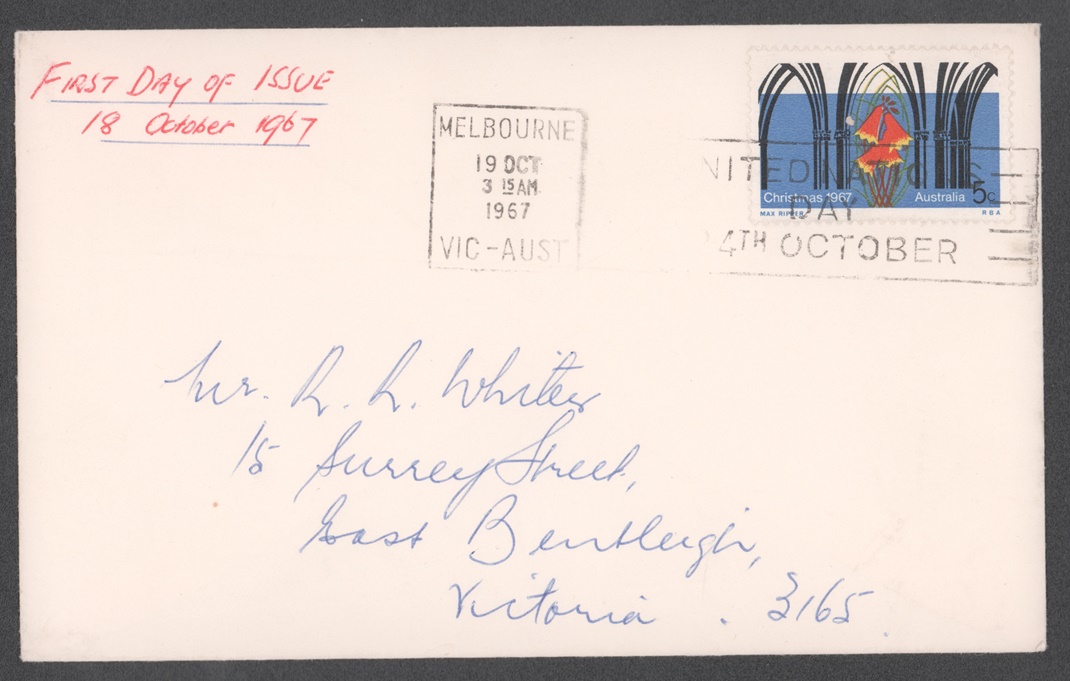 FIRST DAY OF ISSUE
18 October 1967
MELBOURNE
19 OCT
3 15 AM
1967
VIC-AUST
NITED NATIONS
DAY
24TH OCTOBER
Christmas 1967 Australia 5c
MAX RIPPER RBA
Mr. R. R. Whiter
15 Surrey Street,
East Bentleigh,
Victoria . 3165.